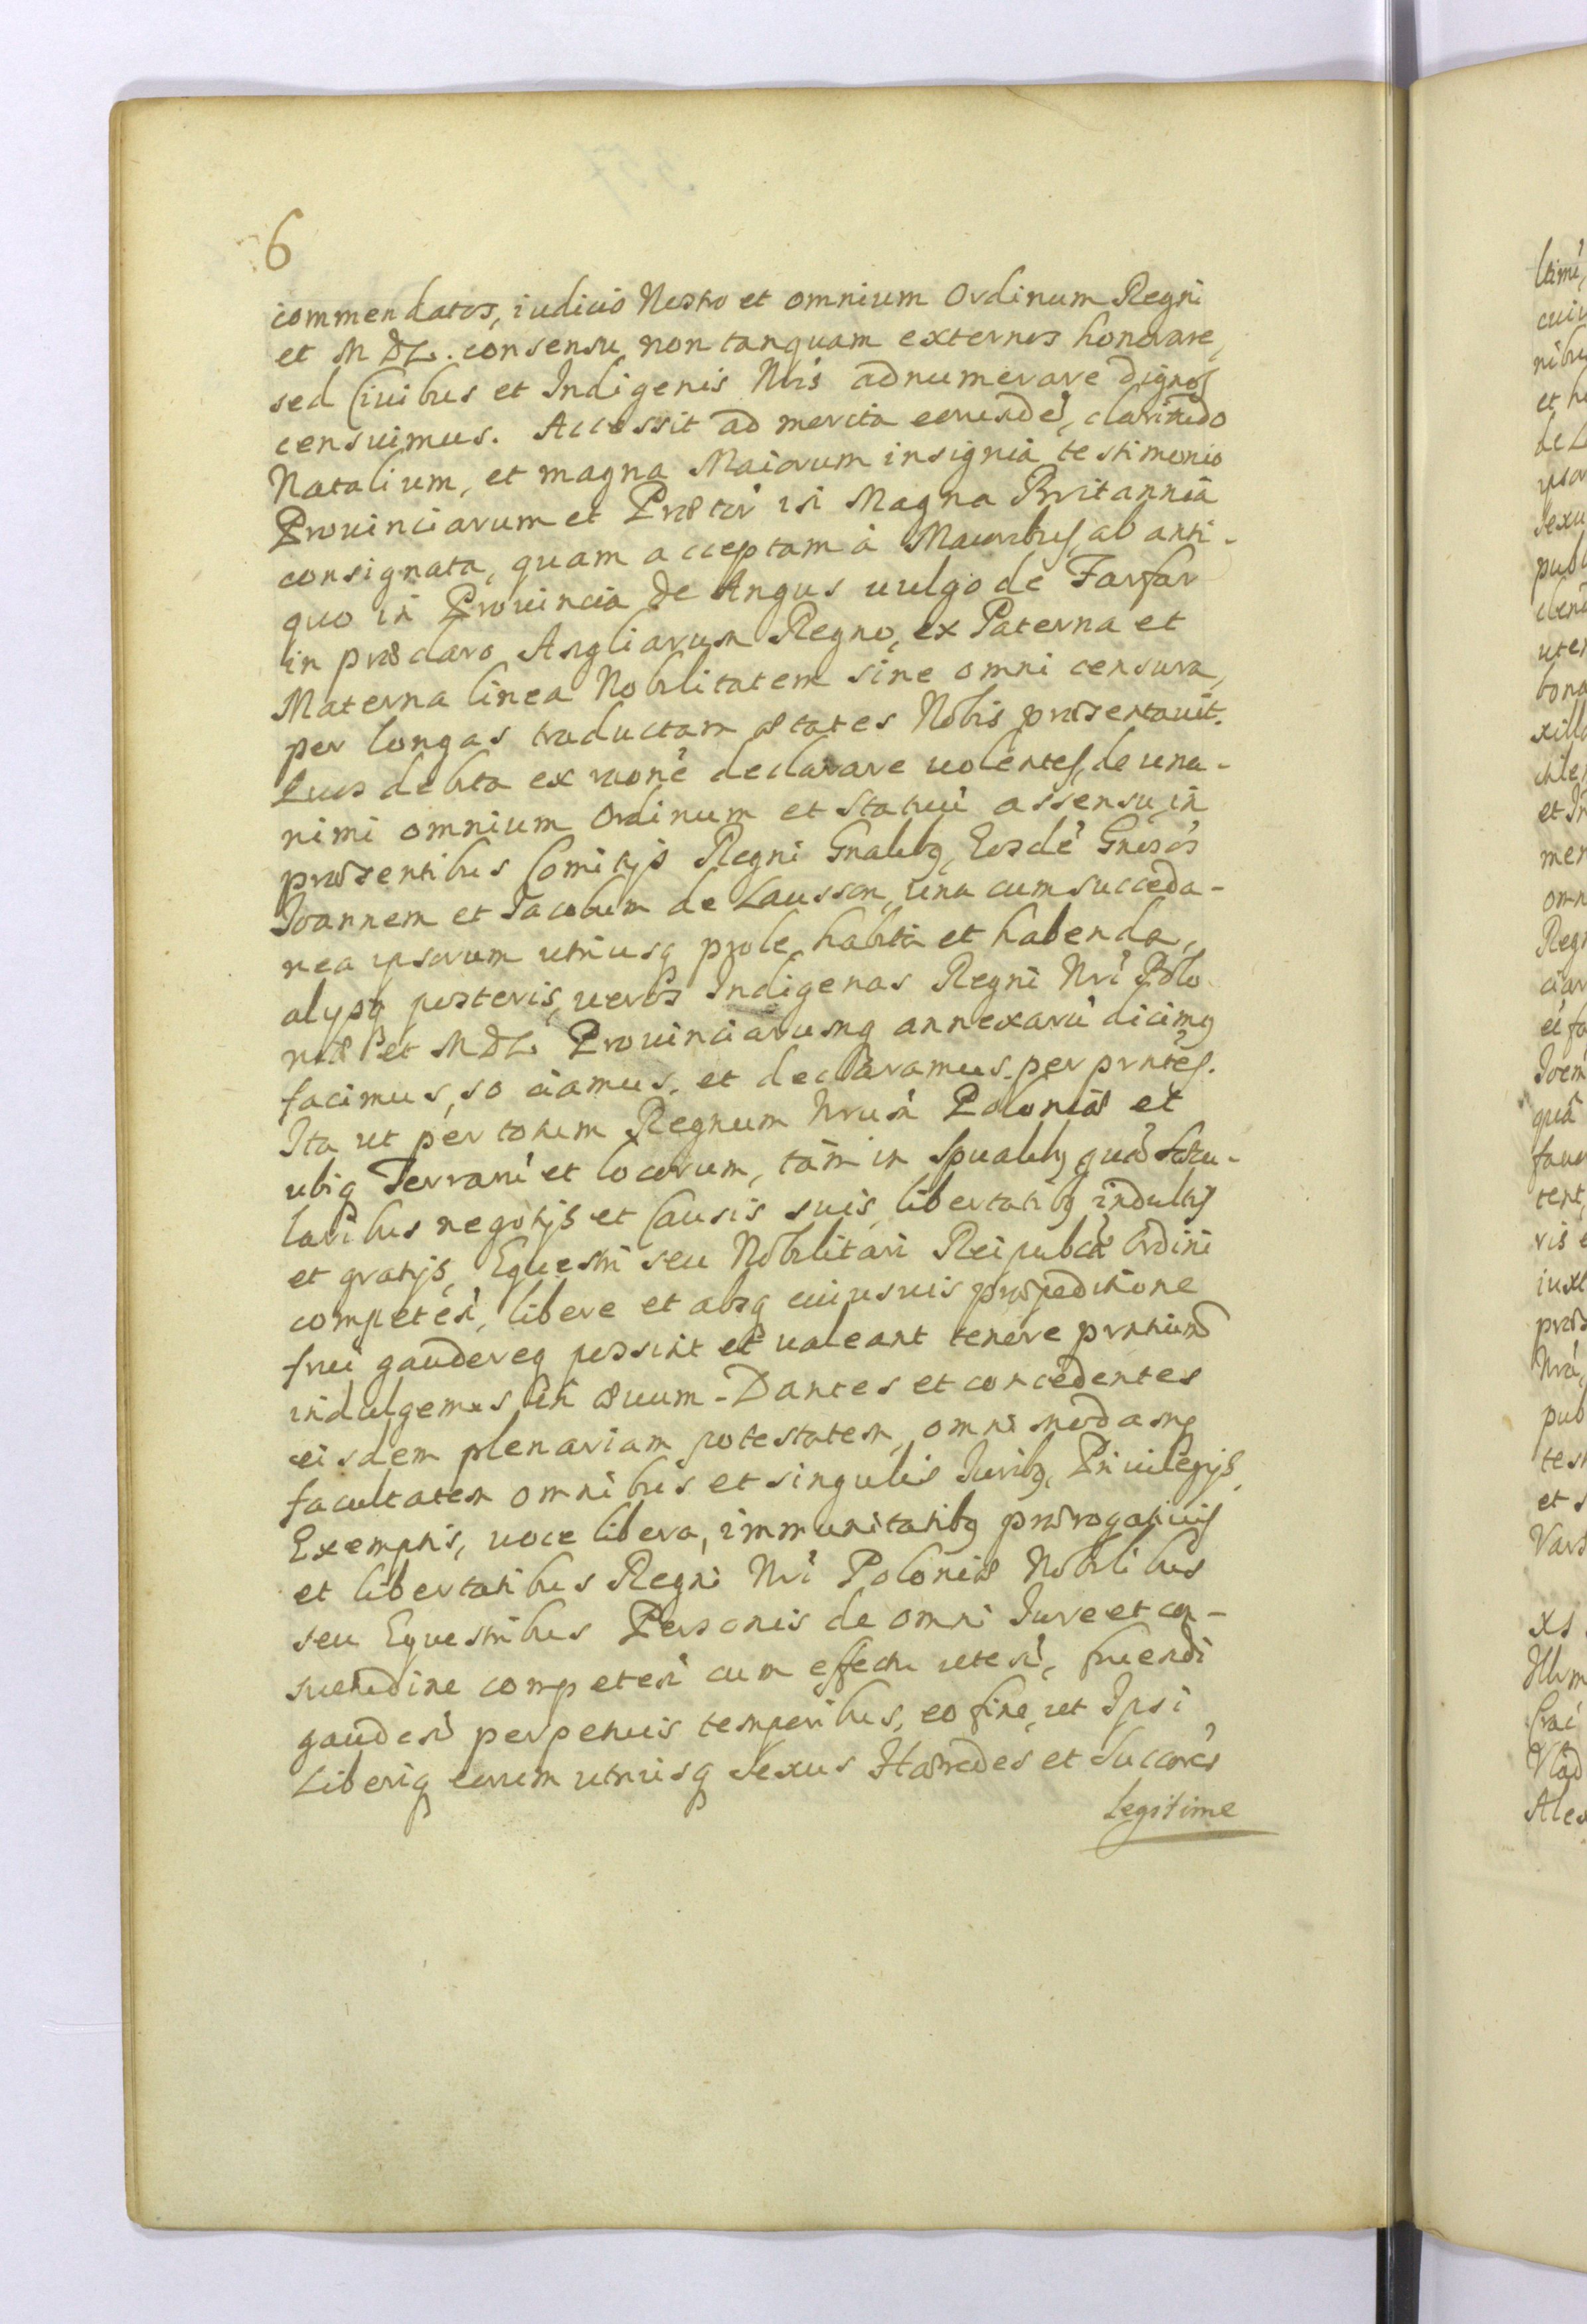 6
commendatos, iudicio Nostro et omnium Ordinum Regni
et M D L. consensu non tanquam externos honorare,
sed Civibus et Indigenis Nris adnumerare dignos
censuimus. Accessit ad merita eorundẽ, claritudo
Natalium, et magna Maiorum insignia testimonio
Provinciarum et in Magna Britannia
consignata, quam acceptam à Maioribus, ab anti-
quo in Provincia de Angus vulgo de Farfar
in præclaro Angliarum Regno, ex Paterna et
Materna linea Nobilitatem sine omni censura,
per longas traductam ætates Nobis præsentavit.
Quos debita ex raõne declarare volentes, de una-
nimi omnium Ordinum et Statuũ assensu, in
præsentibus Comitijs Regni Gnalibq, Eosdẽ Gnõsõs
Joannem et Jacobum de Lausson, una cum succeda-
nea ipsorum utriusq prole habita et habenda,
alijsq posteris, veros Indigenas Regni Nri Polo
niæ et M D L Provinciarumq annexarũ dicimq
facimus, sociamus, et declaramus per prntes.
Ita ut per totum Regnum Nrum Poloniæ et
ubiq Terrarũ et locorum, tàm in Spualibq quã Sæcu-
laribus negotijs et Causis suis, libertatibq indultis
et gratijs, Equestri seu Nobilitari Reipublcæ Ordini
competeñ, libere et absq cuiusvis præpeditione
frui gaudereq possint et valeant tenore prntium
indulgemus in ævum. Dantes et concedentes
eisdem plenariam potestatem, omnimodamq
facultatem omnibus et singulis Juribq, Privilegijs,
Exemptis, voce libera, immunitatibq prærogativis
et libertatibus Regni Nri Poloniæ Nobilibus
seu Equestribus Personis de omni Jure et con-
suetudine competeñ cum effectu uteñ, fruendi
gaudeñ perpetuis temporibus, eo fine, ut Ipsi
Liberiq eorum utriusq Sexus Hæredes et Succores
Legitime